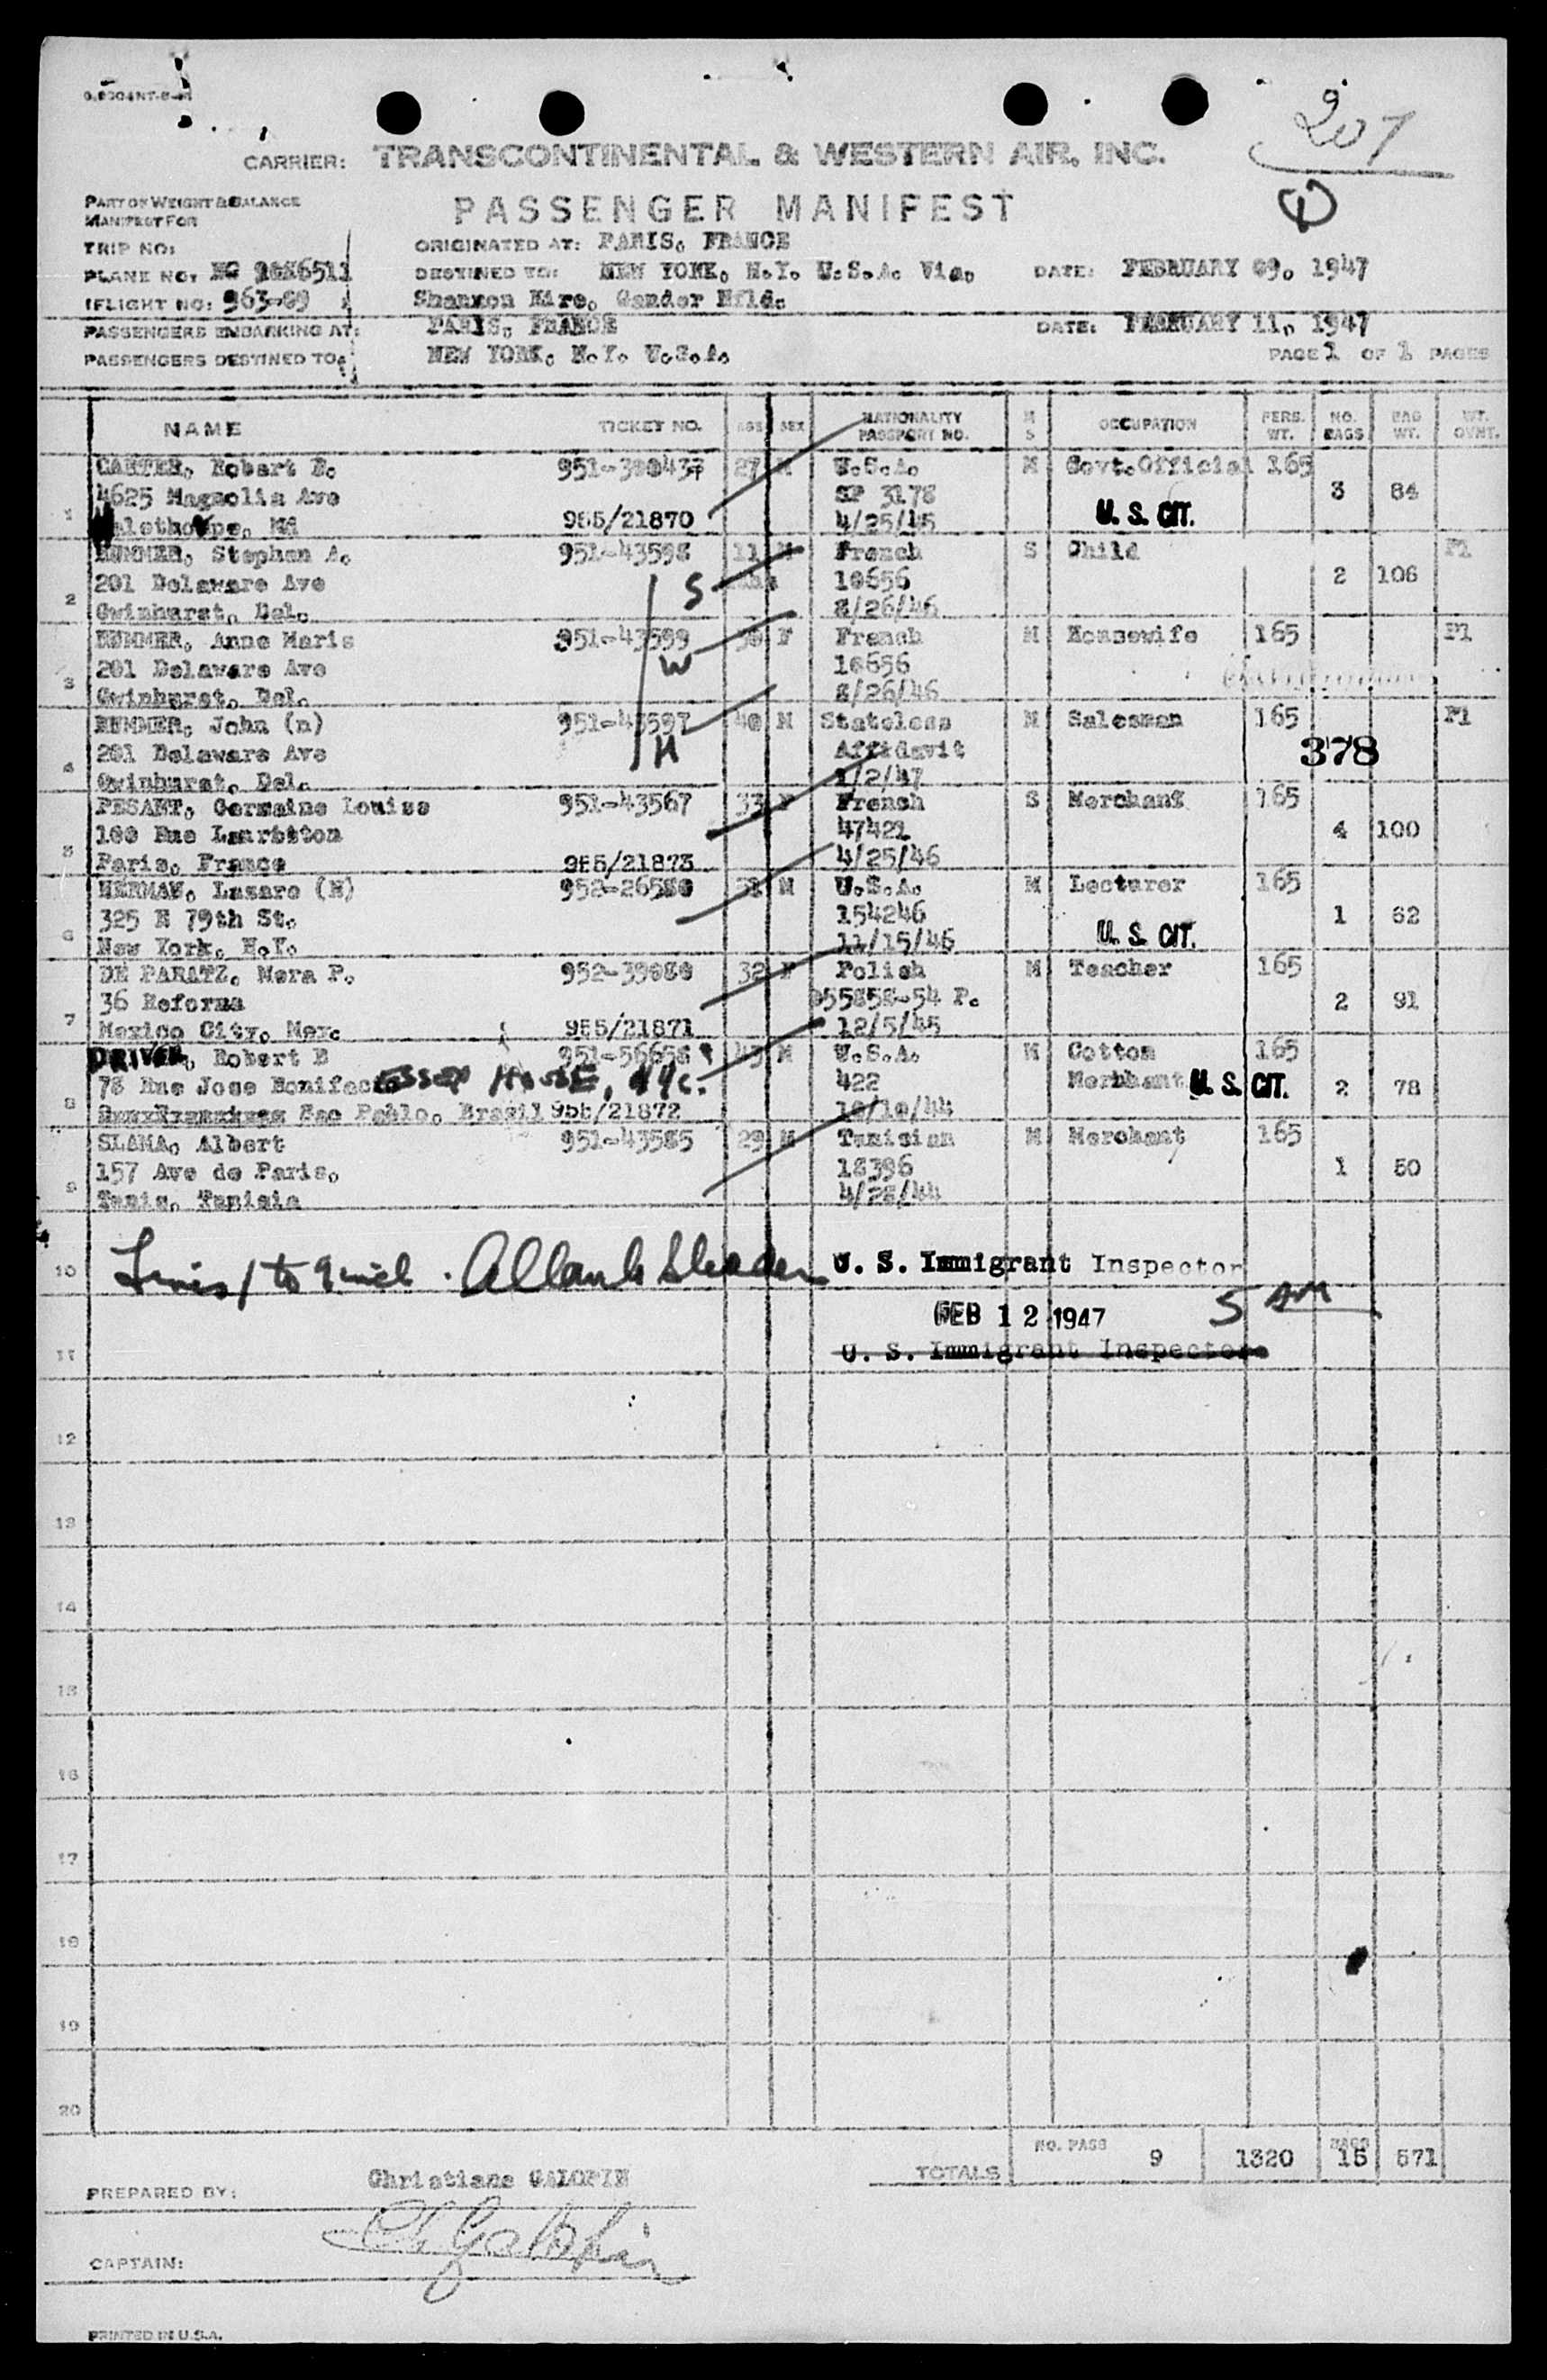 207
CARRIER: TRANSCONTINENTAL & WESTERN AIR, INC.
1
PART OF WEIGHT & BALANCE
MANIFEST FOR
PASSENGER MANIFEST
TRIP NO:
ORIGINATED AT: PARIS, FRANCE
PLANE NO: NC
DESTINED TO: NEW YORK, N.Y. U.S.A. Via, DATE: FEBRUARY 09, 1947
FLIGHT NO: 963-09 Shannon Eire, Gander Nfld.
PASSENGERS EMBARKING AT: PARIS, FRANCE DATE: FEBRUARY 11, 1947
PASSENGERS DESTINED TO: NEW YORK, N.Y. U.S.A. PAGE 1 OF 1 PAGES
NAME TICKET NO. AGE SEX NATIONALITY PASSPORT NO. M S OCCUPATION PERS. WT. NO. BAGS BAG WT. WT. OVHT.
CARTER, Robert 27 M U.S.A. M Govt.Official 165
4625 Magnolia Ave SP 3178 3 84
1 986/21870 4/25/45 U. S. CIT.
Stephan A. 951-43598 11 M French S Child Pl
201 Delaware Ave S 10656 2 106
2 Gwinhurst, Del. 8/26/46
Anne Marie 951-43599 F French M Housewife 165 Pl
201 Delaware Ave W 10656
3 Gwinhurst, Del. 8/26/46
John (n) 951-43597 40 M Stateless M Salesman 165 Pl
201 Delaware Ave H Affidavit 378
4 Gwinhurst, Del. 1/2/47
PESANT, Germaine Louise 951-43567 33 F French S Merchant 165
100 Rue Lauriston 47421 4 100
5 Paris, France 986/21873 4/25/46
HERMAN, Lazare (N) M U.S.A. M Lecturer 165
325 E 79th St. 154246 1 62
6 New York, N.Y. 11/15/46 U. S. CIT.
DE PARATZ, Mera P. 952-39080 32 F Polish M Teacher 165
36 Reforma 55858-54 P. 2 91
7 Mexico City, Mex. 986/21871 12/5/45
DRIVER, Robert B 951-56658 43 M U.S.A. M Cotton 165
78 Rua Jose Bonifacio ESSEX HOUSE, NYC. 422 Merchant U. S. CIT. 2 78
8 Sao Paulo, Brasil 986/21872 10/10/44
SLAMA, Albert 951-43585 29 M Tunisian M Merchant 165
157 Ave de Paris, 18396 1 50
9 Tunis, Tunisia 4/28/44
10 Lines 1 to 9 incl. U. S. Immigrant Inspector
FEB 12 1947 5 AM
11 U. S. Immigrant Inspector
12
13
14
15
16
17
18
19
20
TOTALS NO. PASS 9 1320 BAGS 15 571
PREPARED BY: Christiane GALOPIN
CAPTAIN:
PRINTED IN U.S.A.